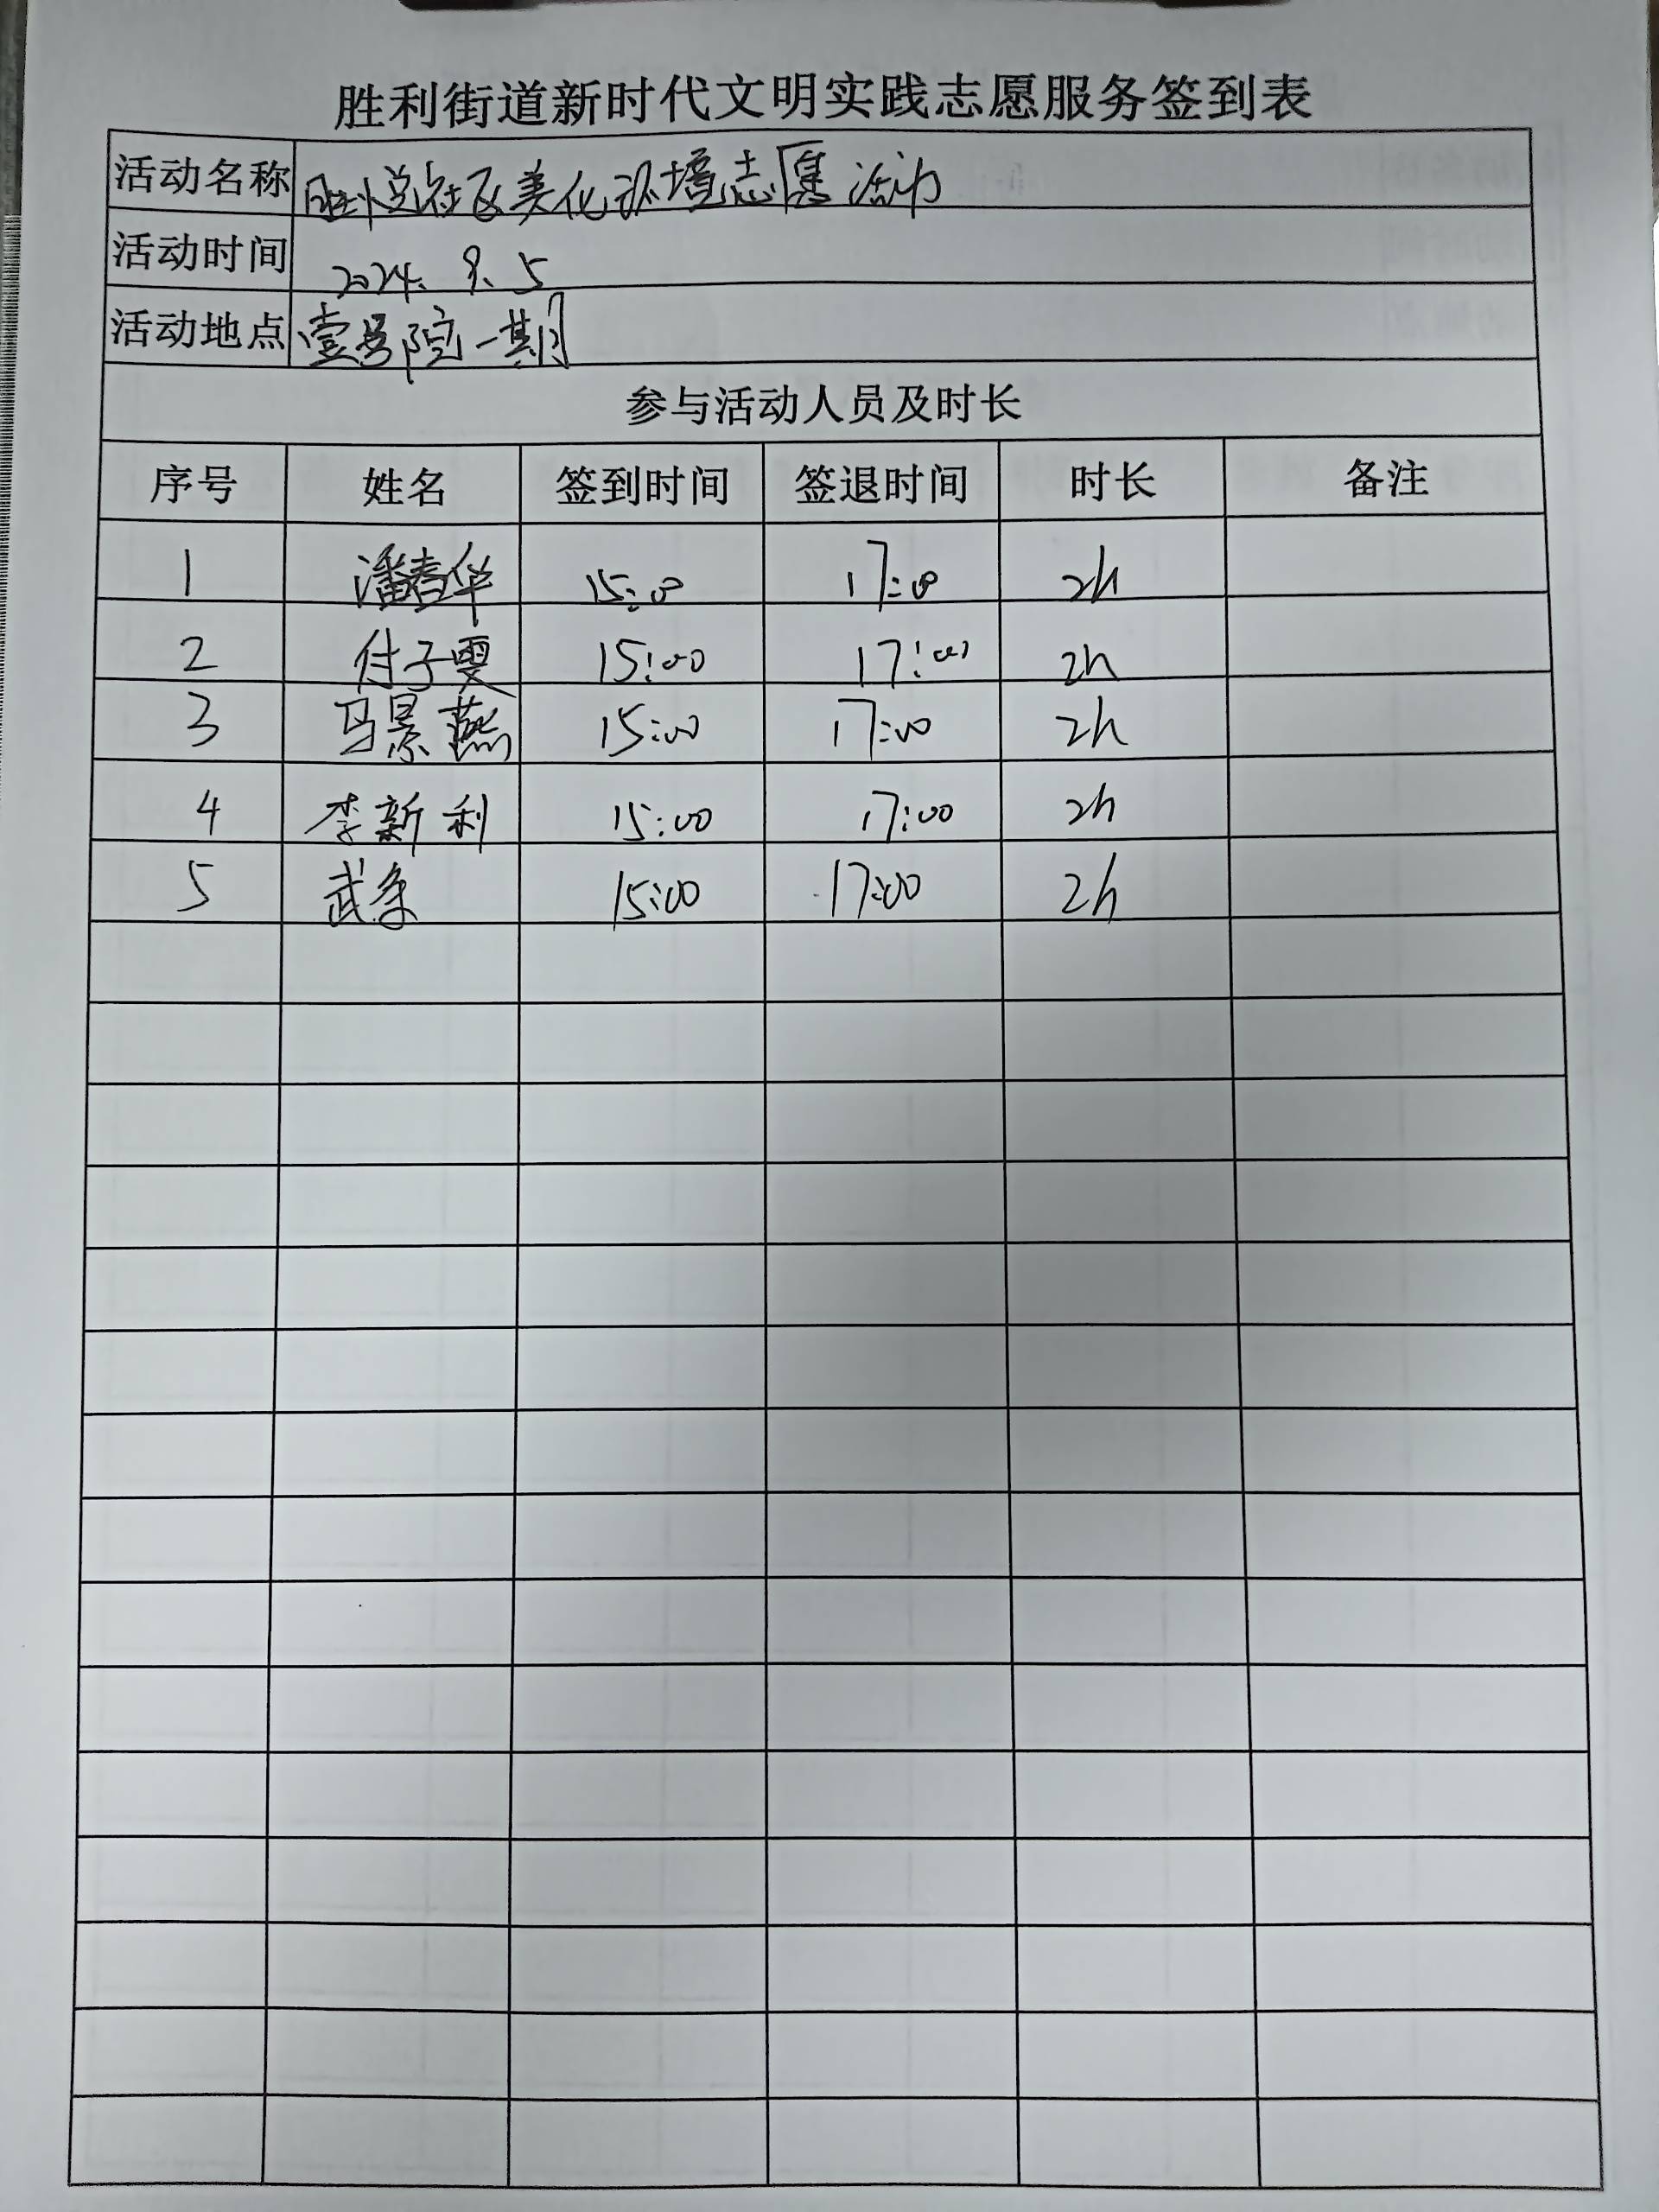 胜利街道新时代文明实践志愿服务签到表
活动名称 社区美化环境志愿活动
活动时间 2024.9.5
活动地点 壹号院一期
参与活动人员及时长
序号 姓名 签到时间 签退时间 时长 备注
1 潘春华 15:00 17:00 2h
2 付子雯 15:00 17:00 2h
3 马景燕 15:00 17:00 2h
4 李新利 15:00 17:00 2h
5 武 15:00 17:00 2h